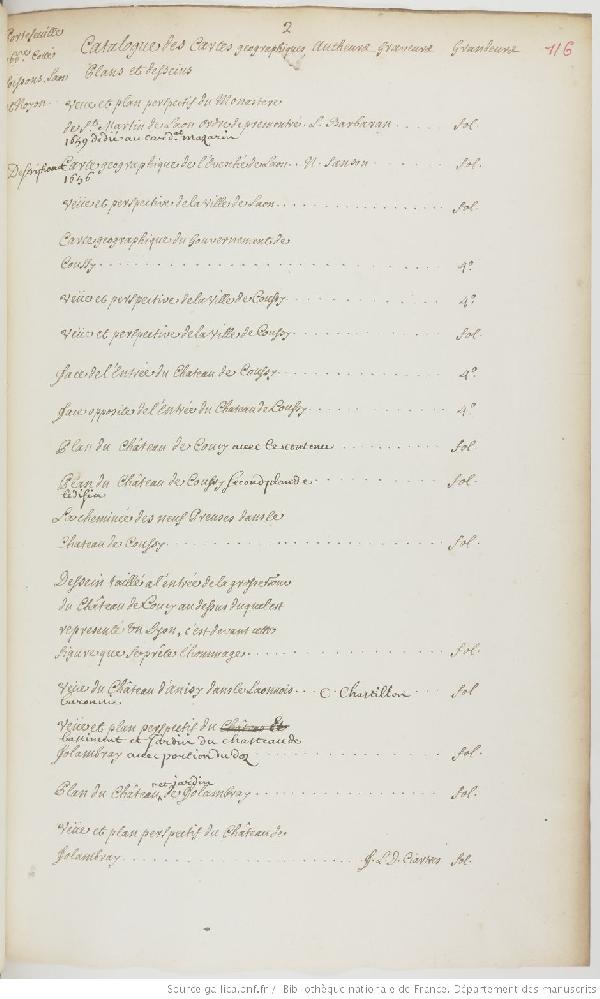 2
Portefeuille
Catalogue des Cartes geographiques Autheurs Graveurs Grandeurs 116
Soissons, Lan Plans et desseins
et Noyon
Veüe et plan perspectif du Monastere
de St. Martin de Laon ordre de premontré. L. Barbaran fol.
1659 dédié au card.al mazarin
Carte geographique de l'Evesché de Laon. N. Sanson fol.
1656
Veüe et perspective de la Ville de Laon fol.
Carte geographique du Gouvernement de
Coussy 4º
Veüe et perspective de la Ville de Coussy 4º
Veüe et perspective de la Ville de Coussy fol.
face de l'Entrée du Chateau de Coussy 4º
face opposite de l'Entrée du Chateau de Coussy 4º
Plan du Château de Coucy avec fol.
Plan du Château de Coussy second plan de fol.
l'edifice
La cheminée des neuf Preuses dans le
Chateau de Coussy fol.
Dessein taillé a l'entrée de la grosse Tour
du Château de Coucy au dessus duquel est
representé un Lyon, c'est devant cette
figure que se prête l'hommage fol.
Veüe du Château d'anisy dans le Laonnois C. Chastillon fol
baronnie
Veüe et plan perspectif du Château et
bastiment et Jardin du chasteau de
Folambray avec portion du fol.
et jardin
Plan du Château de Folambray fol.
Veüe et plan perspectif du Château de
Folambray J. L. D. Ciartres fol.
Source gallica.bnf.fr / Bibliothèque nationale de France. Département des manuscrits